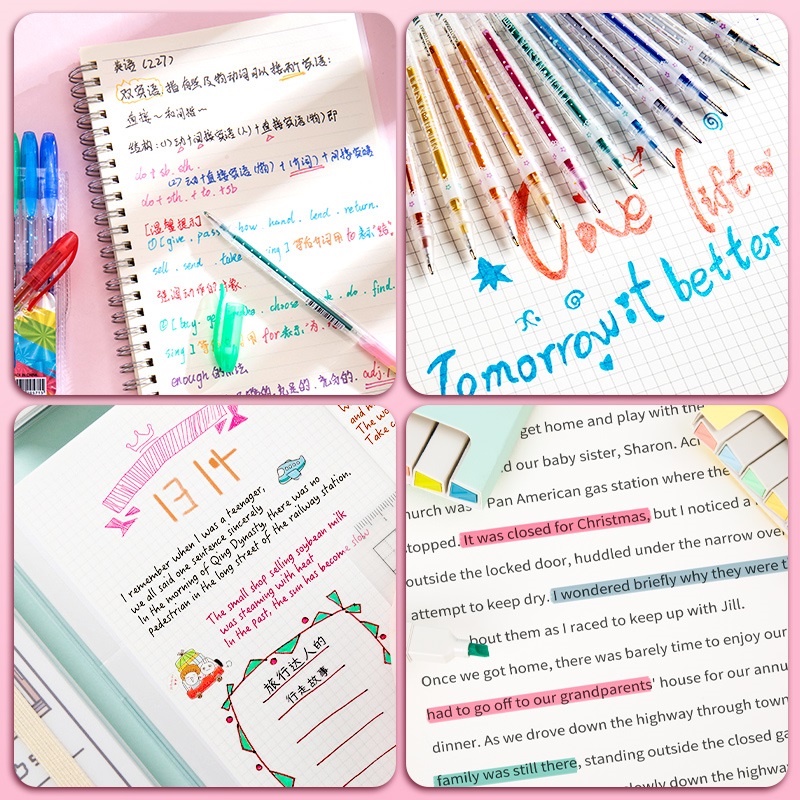 英语 (227)
双宾语 指有些及物动词可以接两个宾语:
直接~和间接~
结构:(1) 动+间接宾语(人)+直接宾语(物)即
do + sb. sth.
(2) 动+直接宾语(物)+(介词)+间接宾语
do + sth. + to. + sb
[温馨提示]
① [give . pass how . hand . lend . return.
sell . send . take sing] 等后介词用 to 表示"给"。
强调动作的对象
② [buy . ma choose . do . find.
sing] 用 for 表示"为
enough 的用法
充足的. 充分的. adj.
Love list
Tomorrow it better
1314
I remember when I was a teenager,
we all said one sentence sincerely
In the morning of Qing Dynasty, there was no
pedestrian in the long street of the railway station.
The small shop selling soybean milk
was steaming with heat
In the past, the sun has become slow
and h
The wo
Take c
旅行达人的
行走故事
get home and play with the
d our baby sister, Sharon. Acr
hurch was Pan American gas station where the
topped. It was closed for Christmas, but I noticed a
outside the locked door, huddled under the narrow over
attempt to keep dry. I wondered briefly why they were t
bout them as I raced to keep up with Jill.
Once we got home, there was barely time to enjoy our
had to go off to our grandparents' house for our annu
dinner. As we drove down the highway through town
family was still there, standing outside the closed ga
slowly down the highway